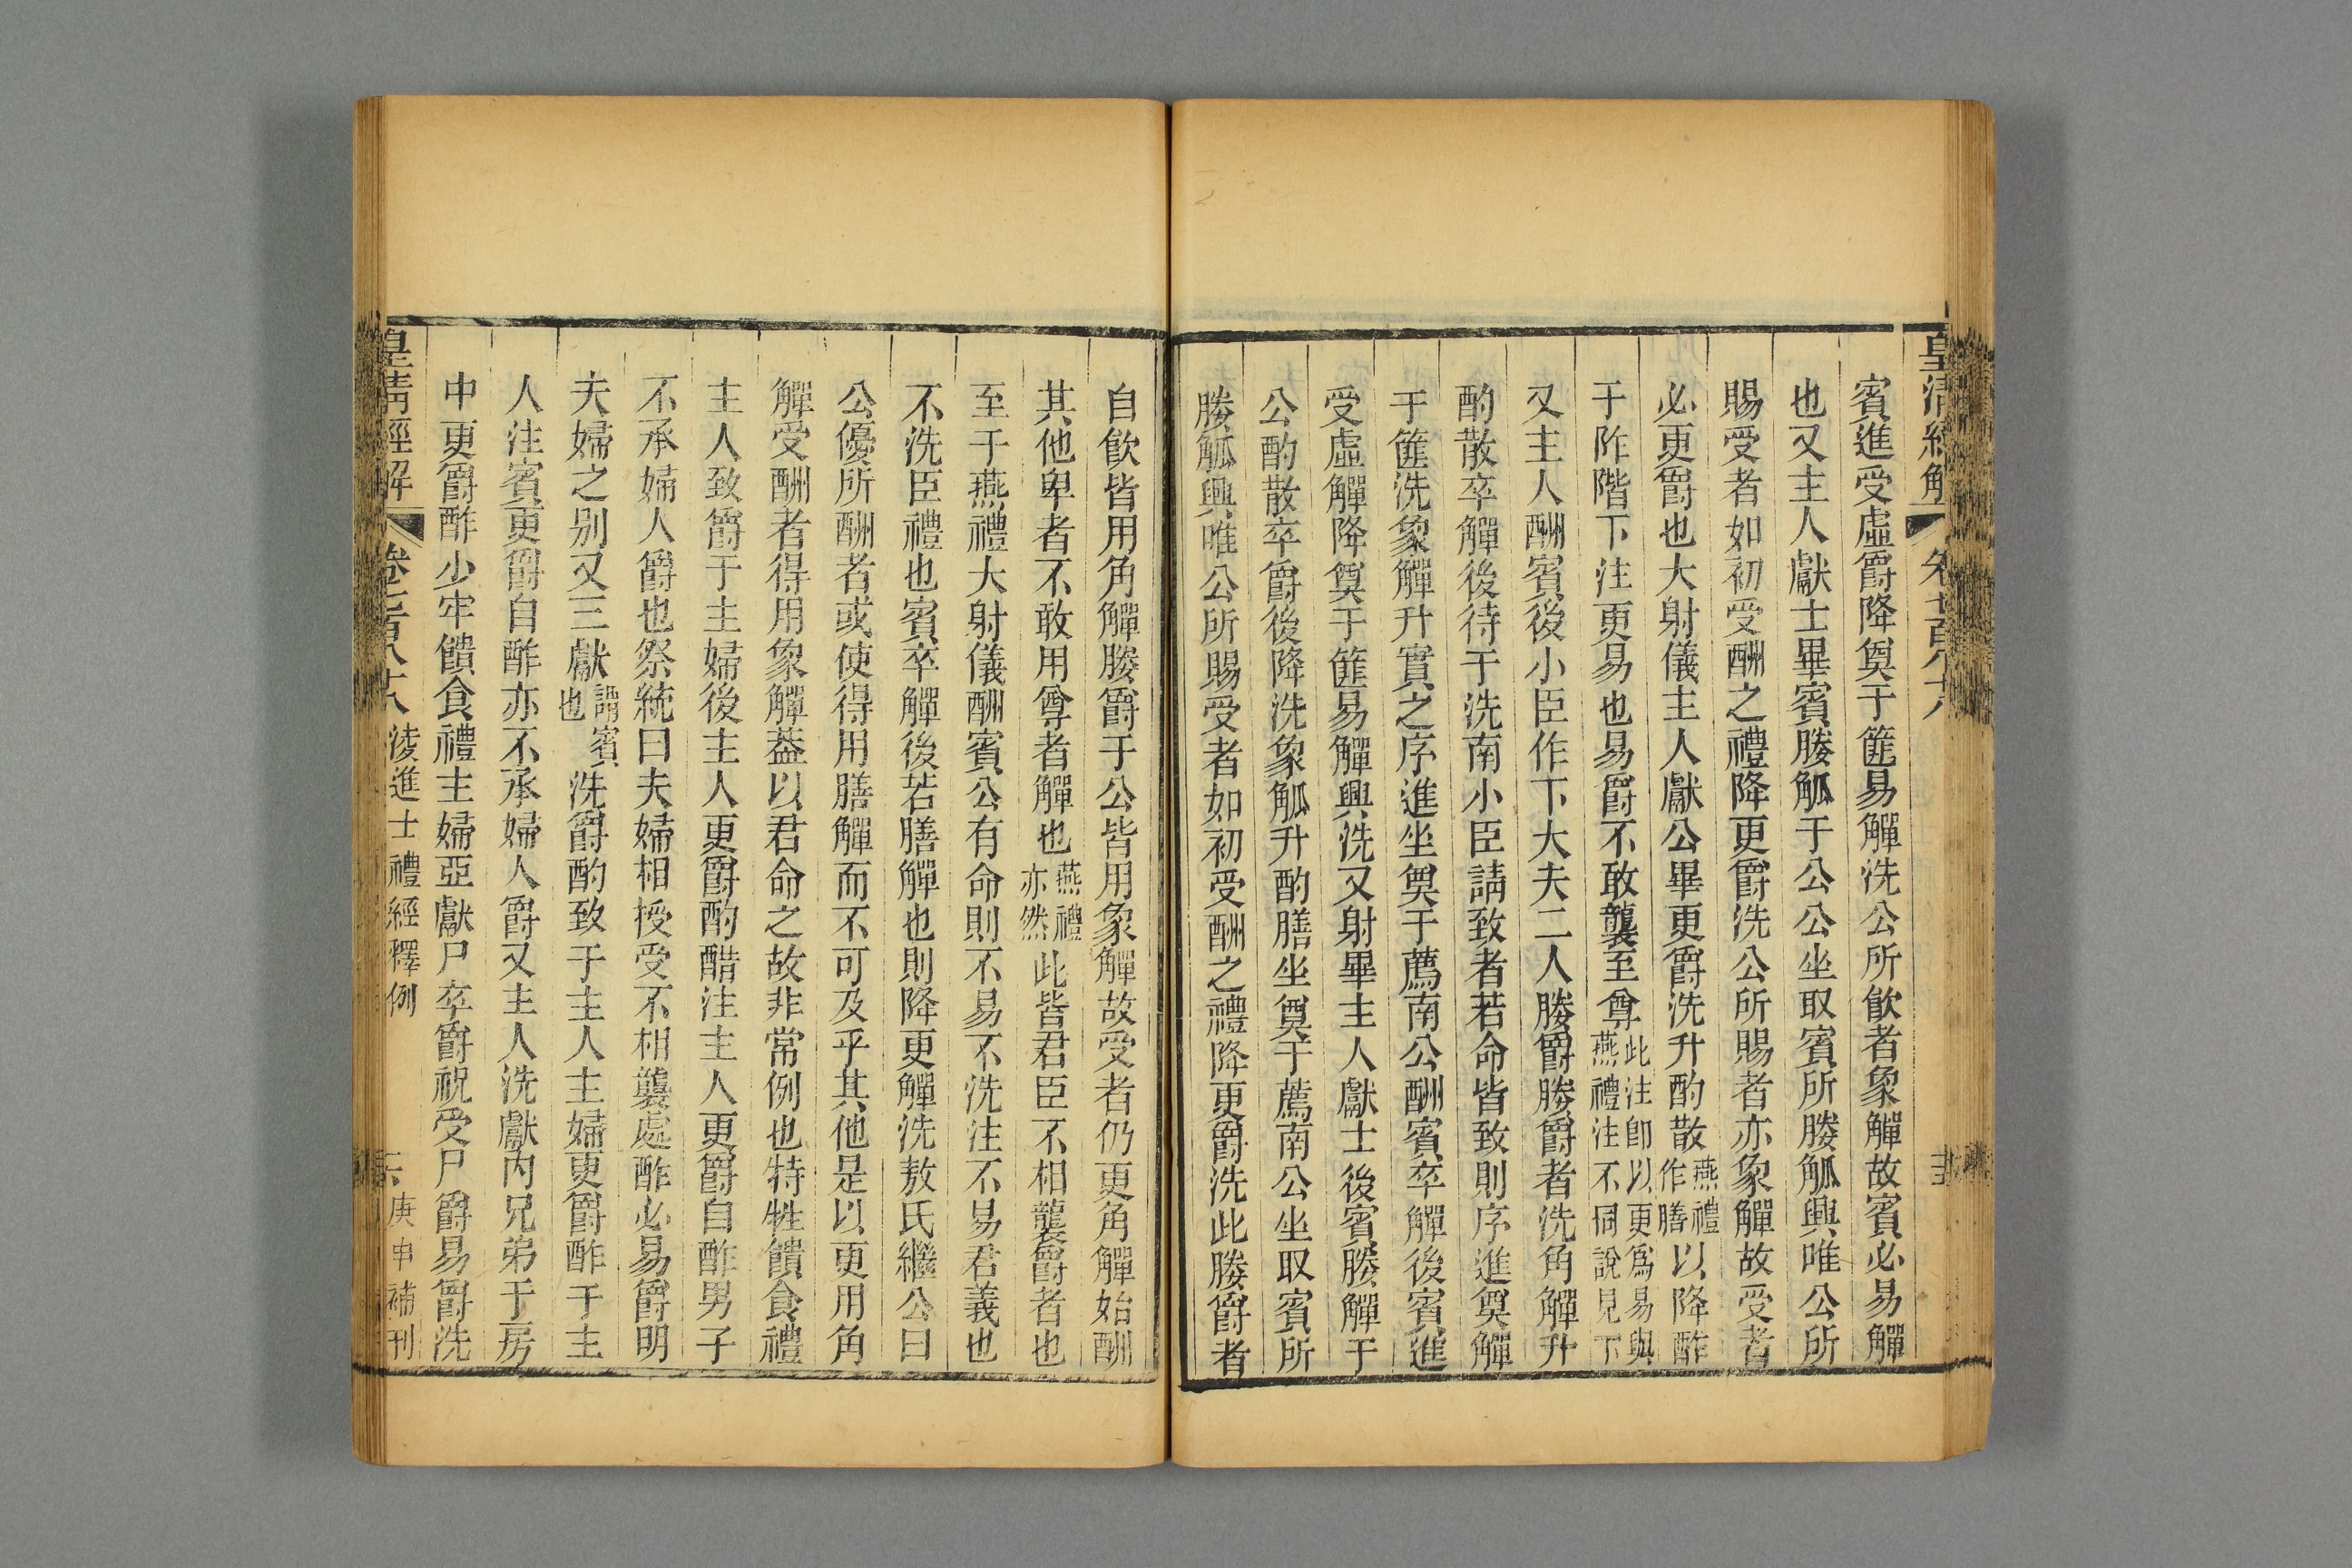 皇清經解
賓進受虛爵降奠于篚易觶洗公所飲者象觶故賓必易觶
也又主人獻士畢賓媵觚于公公坐取賓所媵觚興唯公所
賜受者如初受酬之禮降更爵洗公所賜者亦象觶故受者
必更爵也大射儀主人獻公畢更爵洗升酌散燕禮作膳以降酢
于阼階下注更易也易爵不敢襲至尊此注卽以更爲易與燕禮注不同說見下
又主人酬賓後小臣作下大夫二人媵爵媵爵者洗角觶升
酌散卒觶後待于洗南小臣請致者若命皆致則序進奠觶
于篚洗象觶升實之序進坐奠于薦南公酬賓卒觶後賓進
受虛觶降奠于篚易觶興洗又射畢主人獻士後賓媵觶于
公酌散卒爵後降洗象觚升酌膳坐奠于薦南公坐取賓所
媵觚興唯公所賜受者如初受酬之禮降更爵洗此媵爵者
自飲皆用角觶媵爵于公皆用象觶故受者仍更角觶始酬
其他卑者不敢用尊者觶也燕禮亦然此皆君臣不相襲爵者也
至于燕禮大射儀酬賓公有命則不易不洗注不易君義也
不洗臣禮也賓卒觶後若膳觶也則降更觶洗敖氏繼公曰
公優所酬者或使得用膳觶而不可及乎其他是以更用角
觶受酬者得用象觶葢以君命之故非常例也特牲饋食禮
主人致爵于主婦後主人更爵酌醋注主人更爵自酢男子
不承婦人爵也祭統曰夫婦相授受不相襲處酢必易爵明
夫婦之别又三獻謂賓也洗爵酌致于主人主婦更爵酢于主
人注賓更爵自酢亦不承婦人爵又主人洗獻内兄弟于房
中更爵酢少牢饋食禮主婦亞獻尸卒爵祝受尸爵易爵洗
皇清經解 卷七百八十八 淩進士禮經釋例 庚申補刊